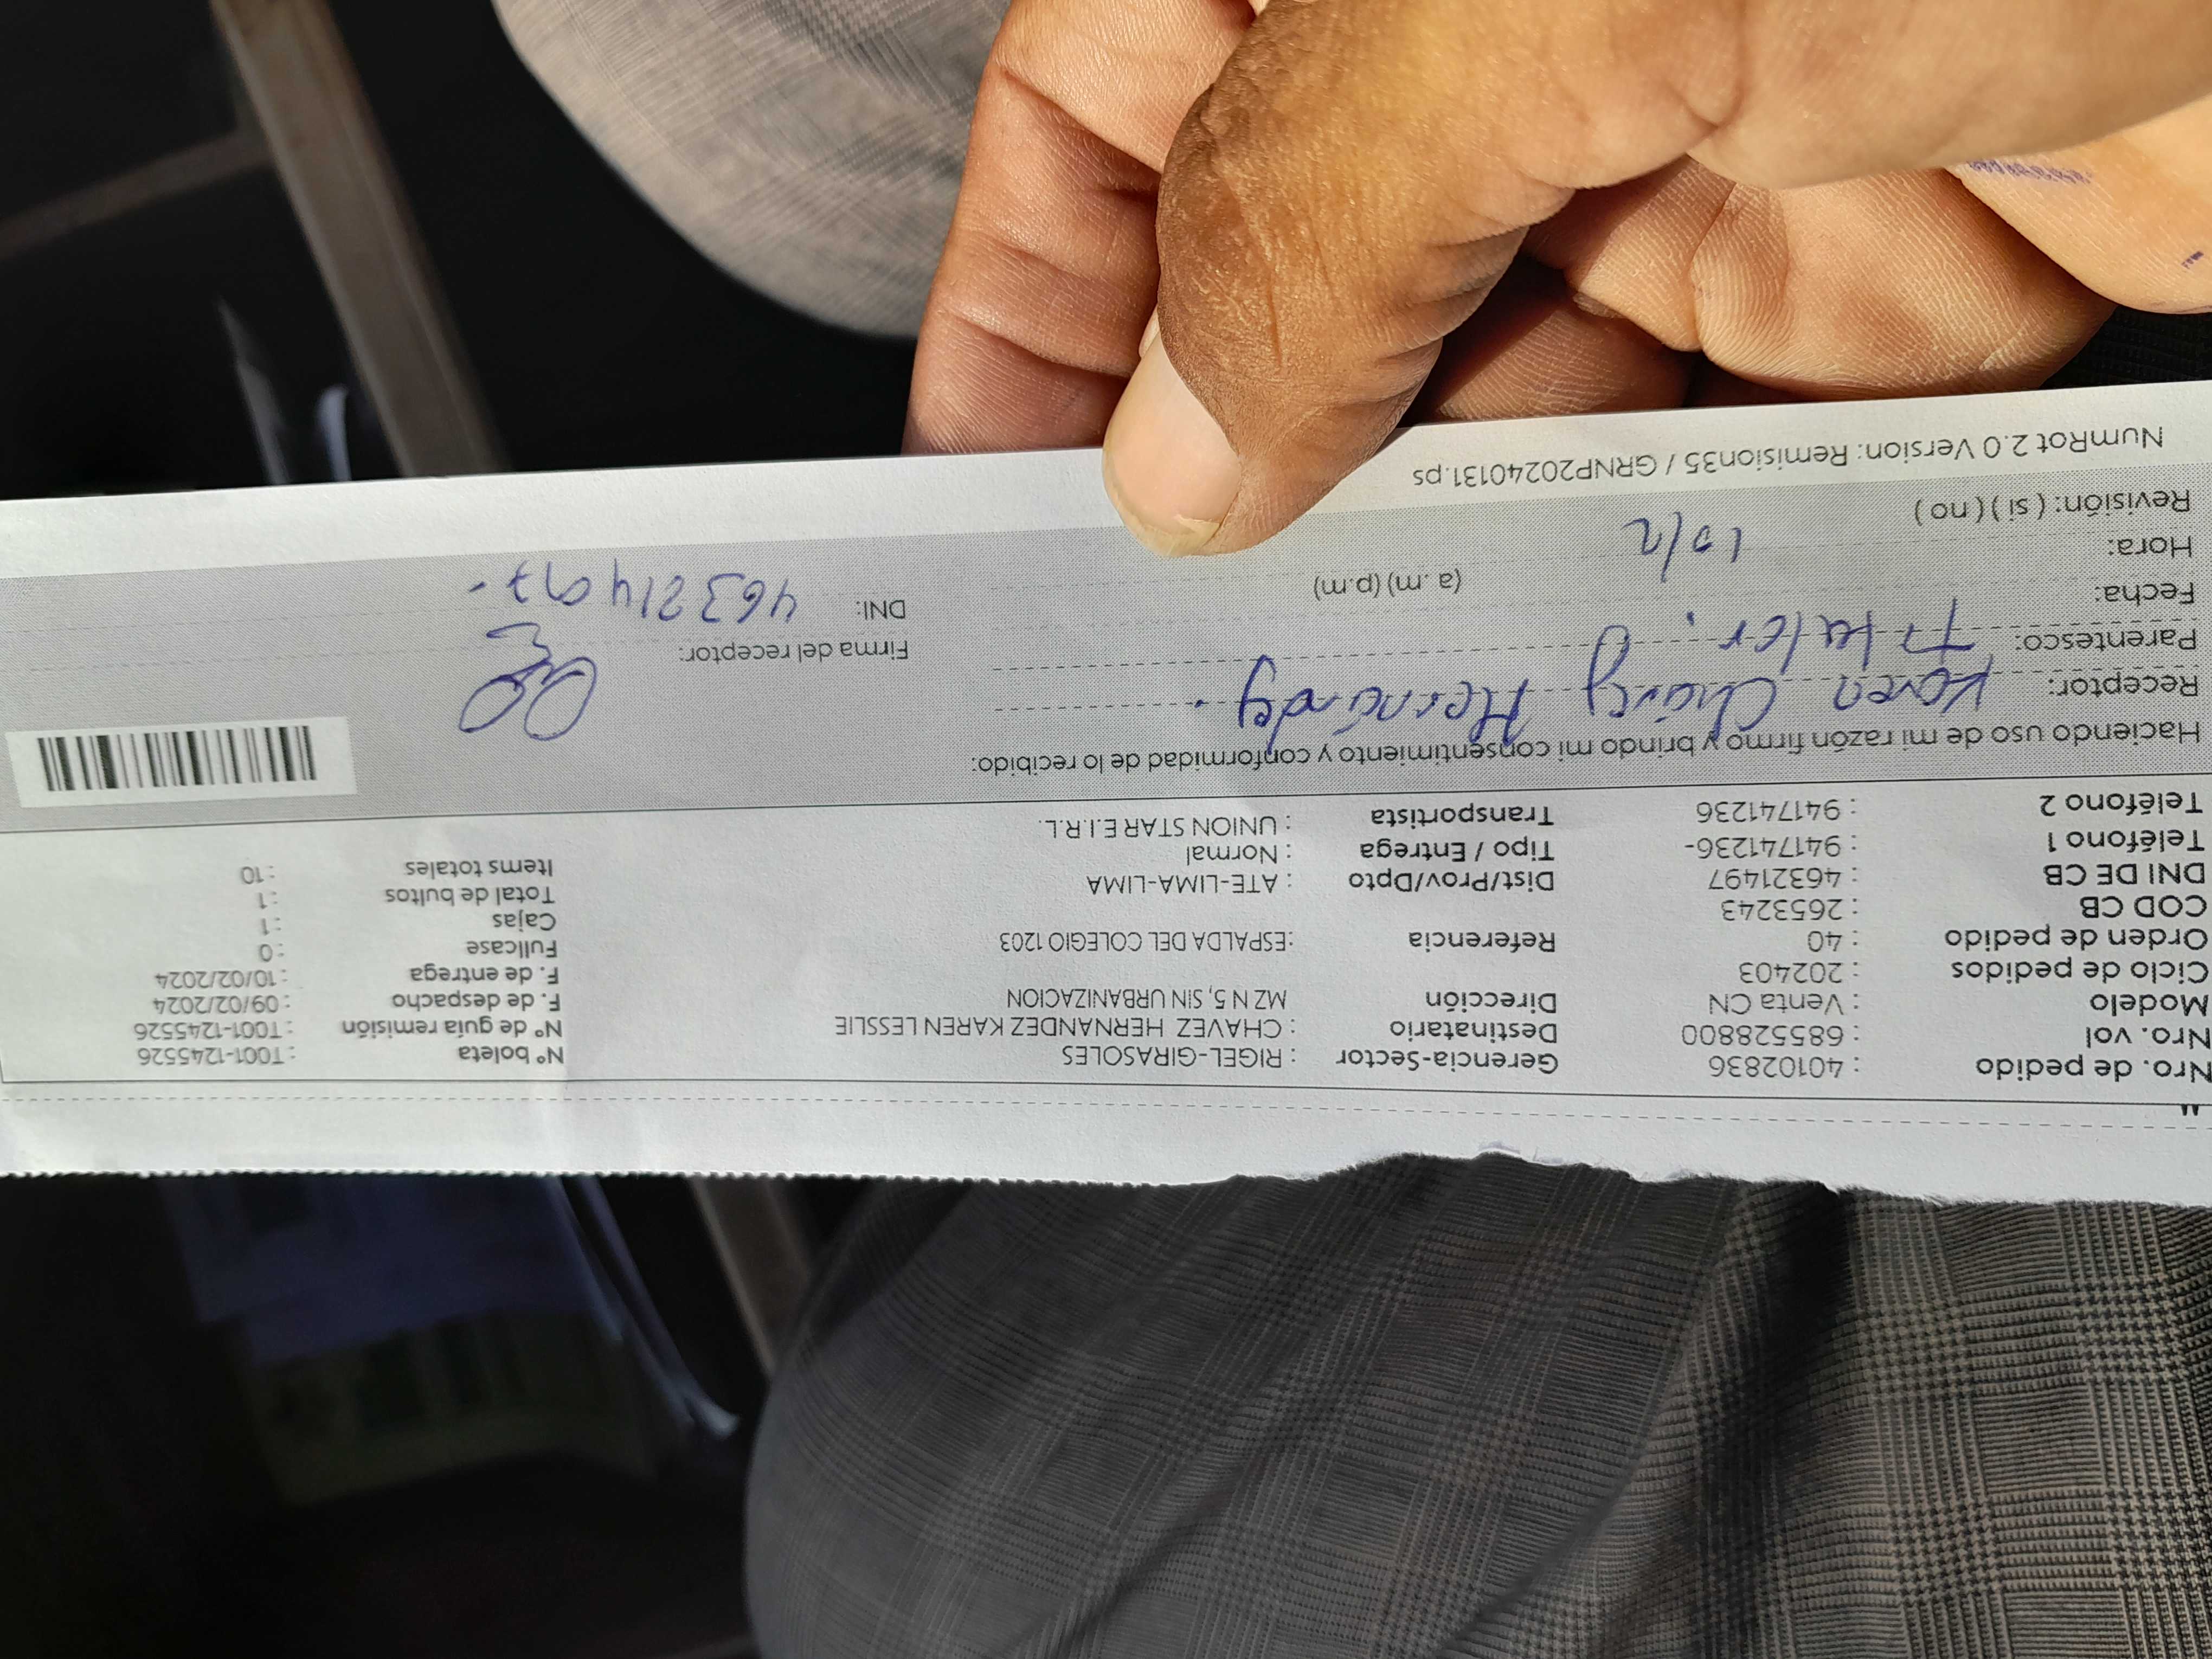 Nro. de pedido : 40102836 Gerencia-Sector : RIGEL-GIRASOLES Nº boleta : T001-1245526
Nro. vol : 685528800 Destinatario : CHAVEZ HERNANDEZ KAREN LESSLIE Nº de guía remisión : T001-1245526
Modelo : Venta CN Dirección MZ N 5, SIN URBANIZACION F. de despacho : 09/02/2024
Ciclo de pedidos : 202403 F. de entrega : 10/02/2024
Orden de pedido : 40 Referencia :ESPALDA DEL COLEGIO 1203 Fullcase : 0
COD CB : 2653243 Cajas : 1
DNI DE CB : 46321497 Dist/Prov/Dpto : ATE-LIMA-LIMA Total de bultos : 1
Teléfono 1 : 941741236- Tipo / Entrega : Normal Items totales : 10
Teléfono 2 : 941741236 Transportista : UNION STAR E.I.R.L.
Haciendo uso de mi razón firmo y brindo mi consentimiento y conformidad de lo recibido:
Receptor: Karen Chávez Hernández.
Parentesco: Titular. Firma del receptor:
Fecha: 10/2 (a. m) (p.m) DNI: 46321497.
Hora:
Revisión: ( si ) ( no )
NumRot 2.0 Version: Remision35 / GRNP20240131.ps